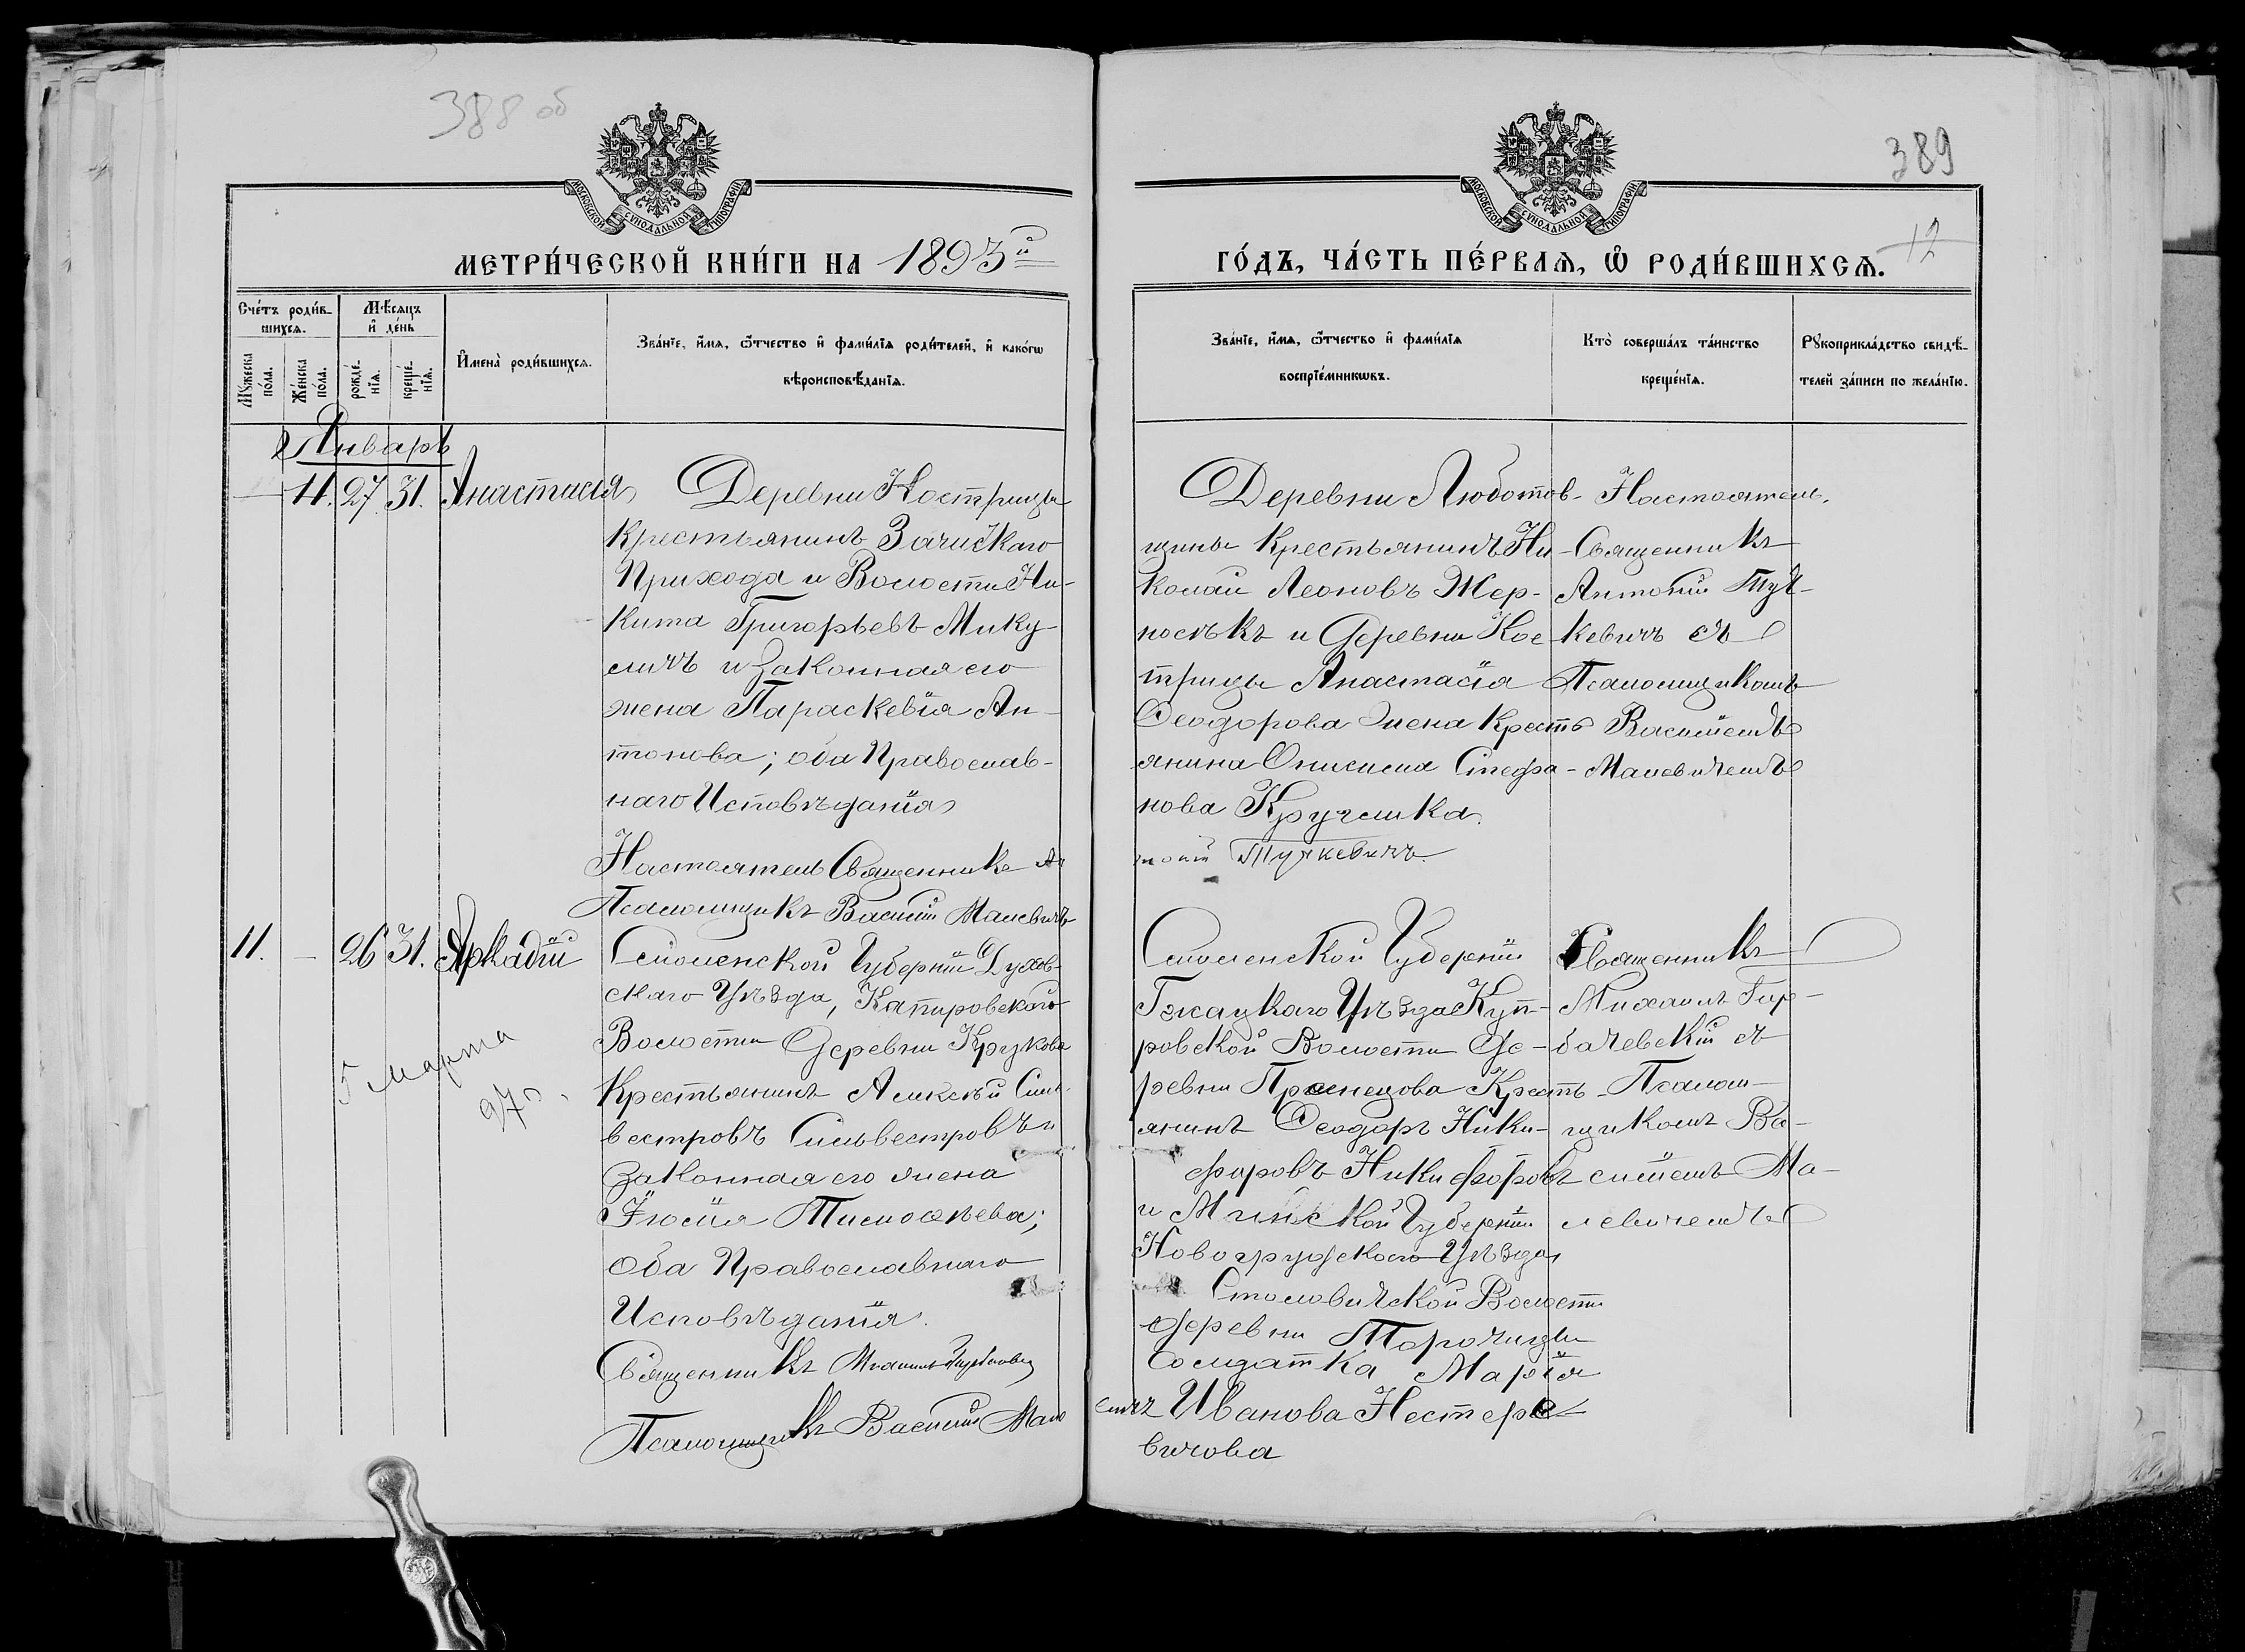 388 об
МОСКОВСКОЙ СУНОДАЛЬНОЙ ТИПОГРАФІИ
МЕТРИ́ЧЕСКОЙ КНИ́ГИ НА 1893й
Сче́тъ роди́в-
шихся.
Мѣ́сяцъ
и҆ де́нь
Мꙋ́жеска
по́ла.
Же́нска
по́ла.
рожде́-
нїѧ.
креще́-
нїѧ.
И҆мена̀ роди́вшихсѧ.
Зва́нїе, и҆́мѧ, ѻ҆́тчество и҆ фами́лїѧ роди́телей, и҆ како́гѡ
вѣроисповѣ́данїѧ.
Январь
11. 27. 31. Анастасія
Деревни Кострицы
крестьянинъ
Прихода и Волости Ни-
кита Григорьевъ Мику-
личъ и законная его
жена Параскевія Ан-
тонова; оба Православ-
наго Исповѣданія
Настоятель Священникъ Ан
Псаломщикъ Василій Малевичъ
11. - 26 31. Аркадій
Смоленской Губерніи Духов-
скаго Уѣзда,
Волости Деревни Крукова
Крестьянинъ Алексѣй Силь-
вестровъ Сильвестровъ и
законная его жена
Тимоѳеева;
оба Православнаго
Исповѣданія.
Священникъ Михаилъ
Псаломщикъ Василій Мале
5 Марта
97 г.
389
12
МОСКОВСКОЙ СУНОДАЛЬНОЙ ТИПОГРАФІИ
ГО́ДЪ, ЧА́СТЬ ПЕ́РВАѦ, Ѡ҆ РОДИ́ВШИХСѦ.
Зва́нїе, и҆́мѧ, ѻ҆́тчество и҆ фами́лїѧ
воспрїе́мникѡвъ.
Кто̀ соверша́лъ та́инство
креще́нїѧ.
Рꙋкоприкла́дство свидѣ́-
телей за́писи по жела́нїю.
Деревни Люботов-
щины крестьянинъ Ни-
колай Леоновъ Жер-
носѣкъ и Деревни Кос-
трицы Анастасія
Ѳеодорова жена кресть
янина Онисима Стефа-
нова Кручёнка.
тоній Тучкевичъ
Настоятель
Священникъ
Антоній Туч-
кевичъ съ
Псаломщикомъ
Василіемъ
Малевичемъ
Смоленской Губерніи
Гжацкаго Уѣзда Куп-
ровской Волости Де-
ревни Кресть-
янинъ Ѳеодоръ Ники-
форовъ Никифоровъ
и Минской Губерніи
Новогрудскаго Уѣзда
Столовичской Волости
Деревни Торочицы
Солдатка Марія
вичъ Иванова Нестеро-
вичова
Священникъ
Михаилъ Гор-
бачевскій съ
Псалом-
щикомъ Ва-
силіемъ Ма-
левичемъ